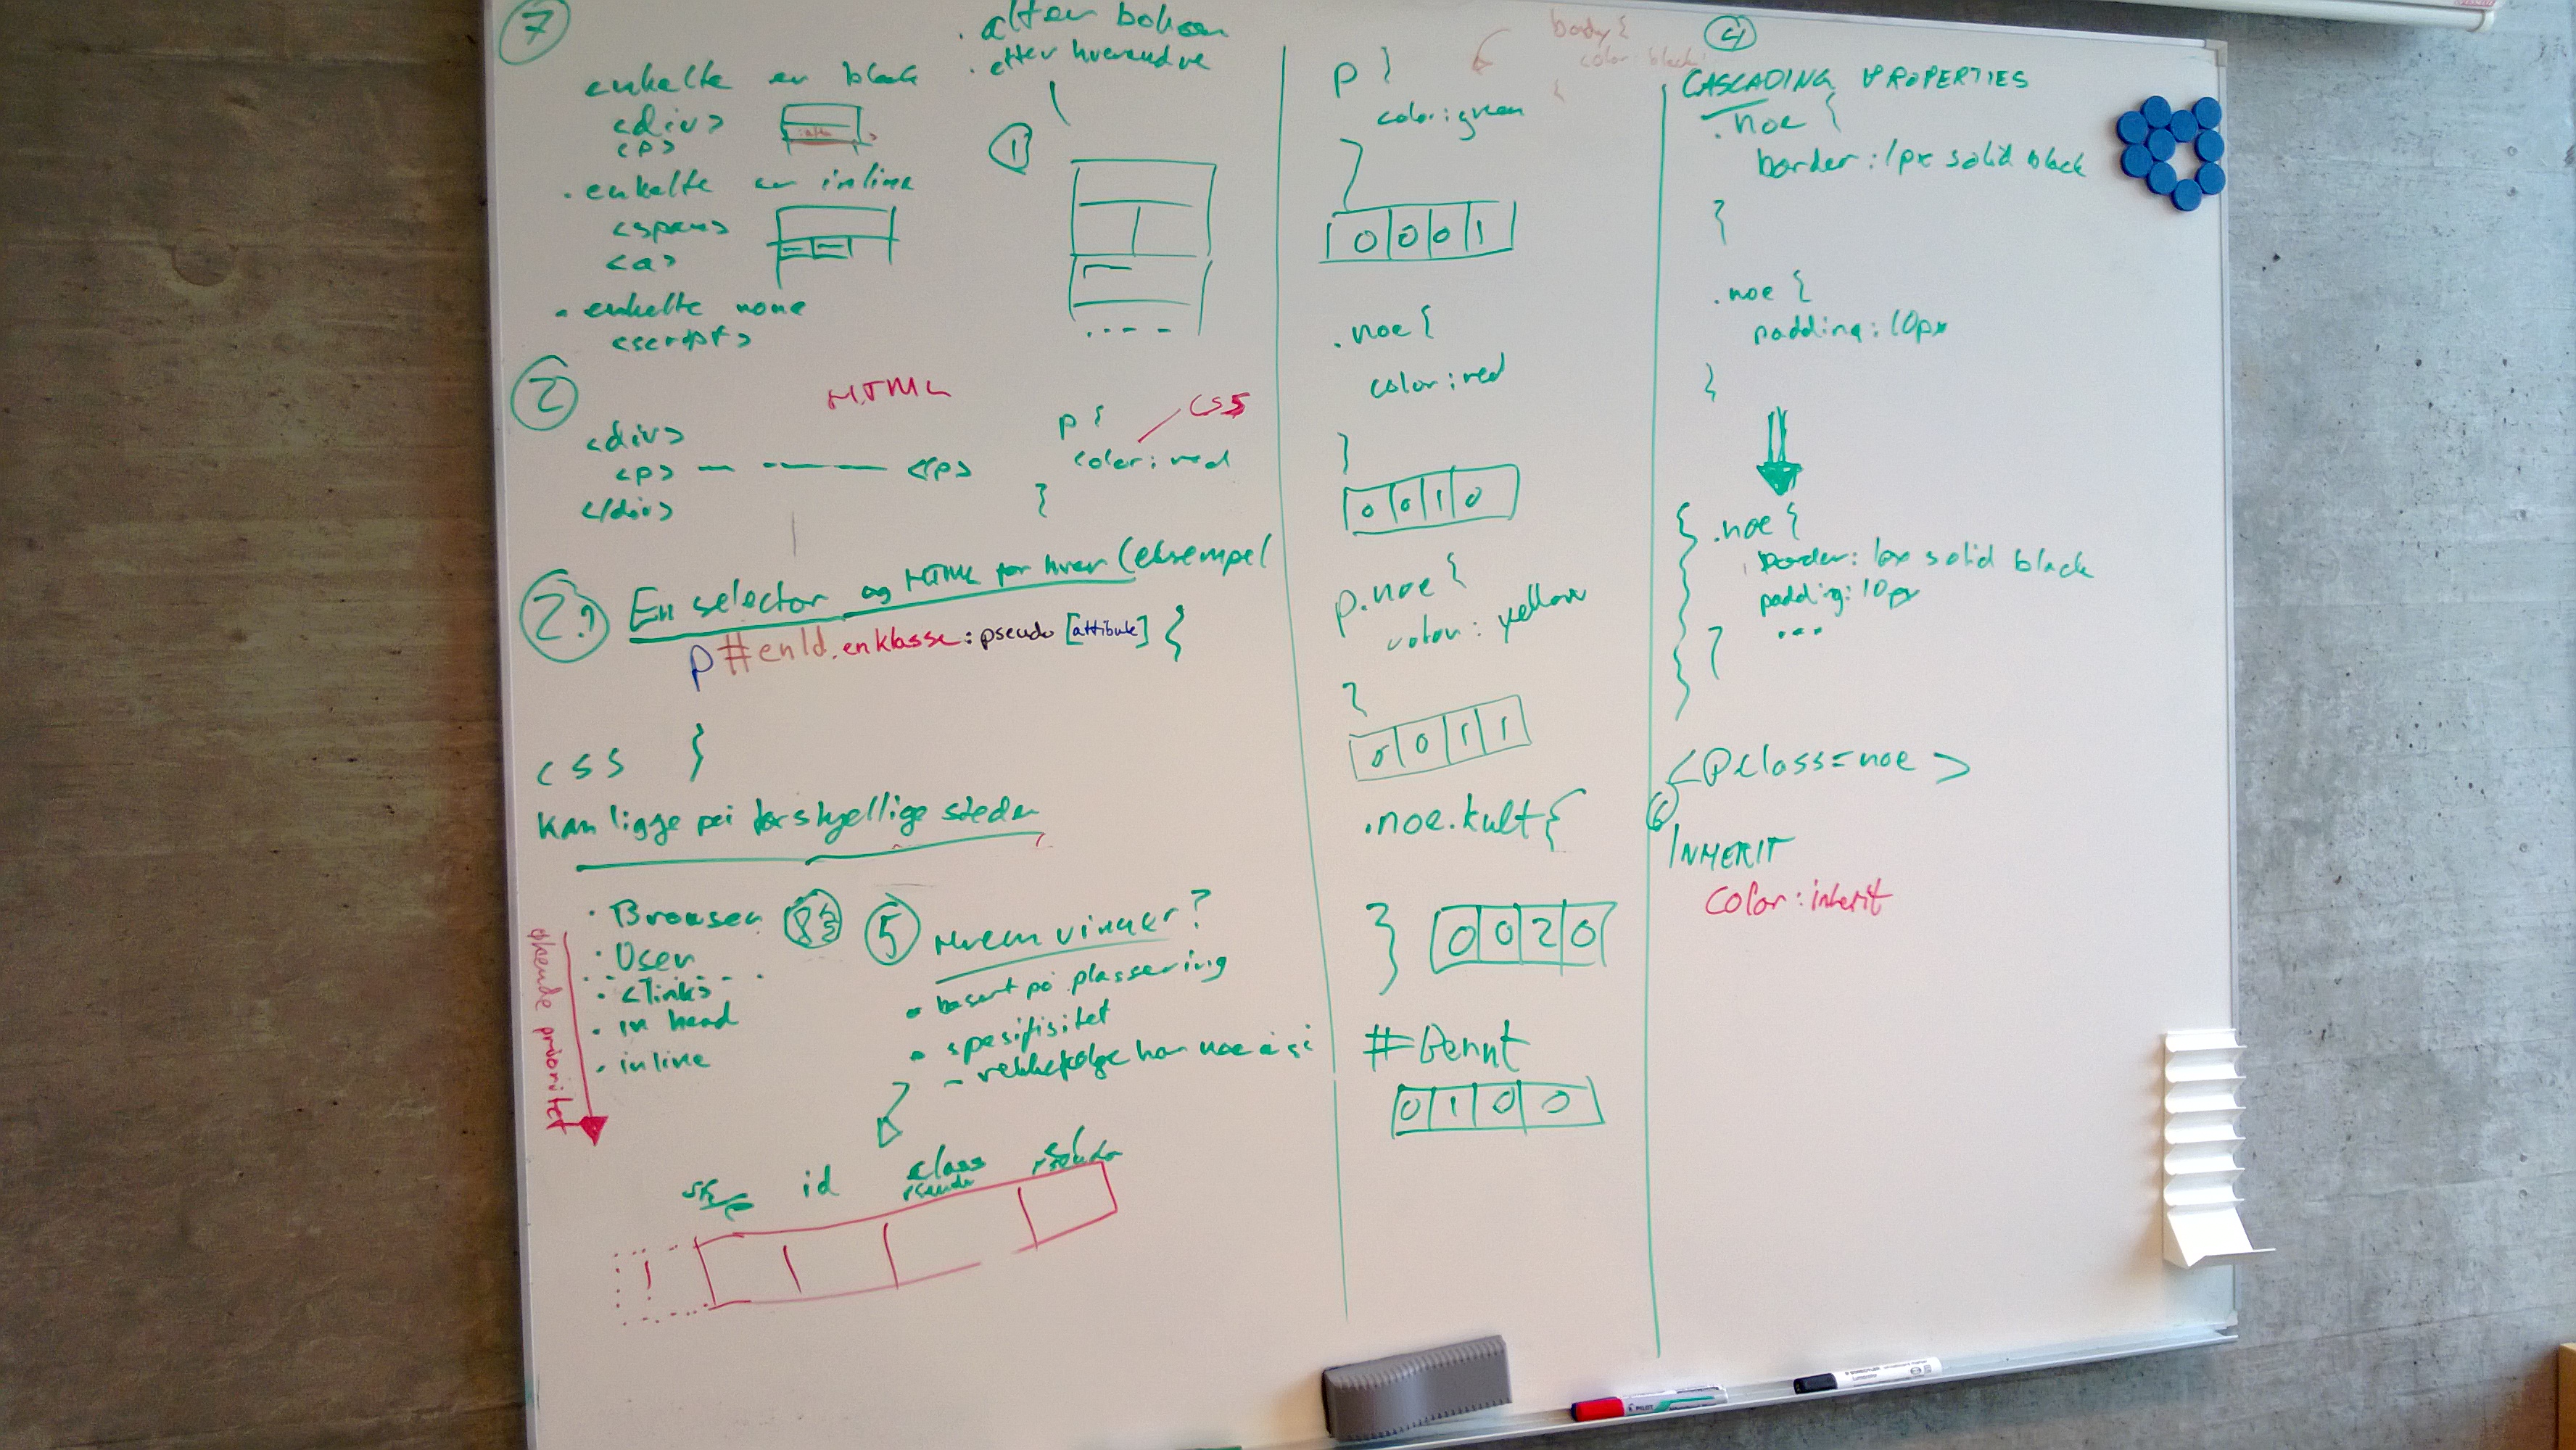 7
enkelte er block
<div>
<p>
. enkelte er inline
<span>
<a>
. enkelte none
<script>
. etter hverandre
1
2
HTML
<div>
<p> — — — — <p>
</div>
CSS
p {
color: red
}
2.
En selector og HTML for hver (eksempel
p#enId.enklasse:pseudo [attibute] {
}
CSS
kan ligge på forskjellige steder
økende prioritet
. Browser
. User
. <link>
. in head
. inline
5
Hvem vinner?
. basert på plassering
. spesifisitet
- rekkefølge har noe å si
id
class
pseudo
p }
color: green
}
0 0 0 1
body {
color: black
{
.noe {
color: red
}
0 0 1 0
p.noe {
color: yellow
}
0 0 1 1
.noe.kult {
} 0 0 2 0
#Bernt
0 1 0 0
4
CASCADING PROPERTIES
.noe {
border: 1px solid black
}
.noe {
padding: 10px
}
{ .noe {
border: 1px solid black
padding: 10px
...
}
<p class=noe >
6
INHERIT
color: inherit